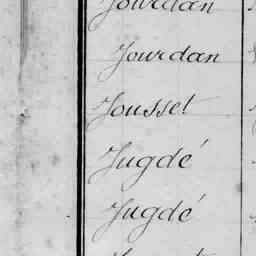 Jourdan
Jourdan
Jousset
Jugdé
Jugdé